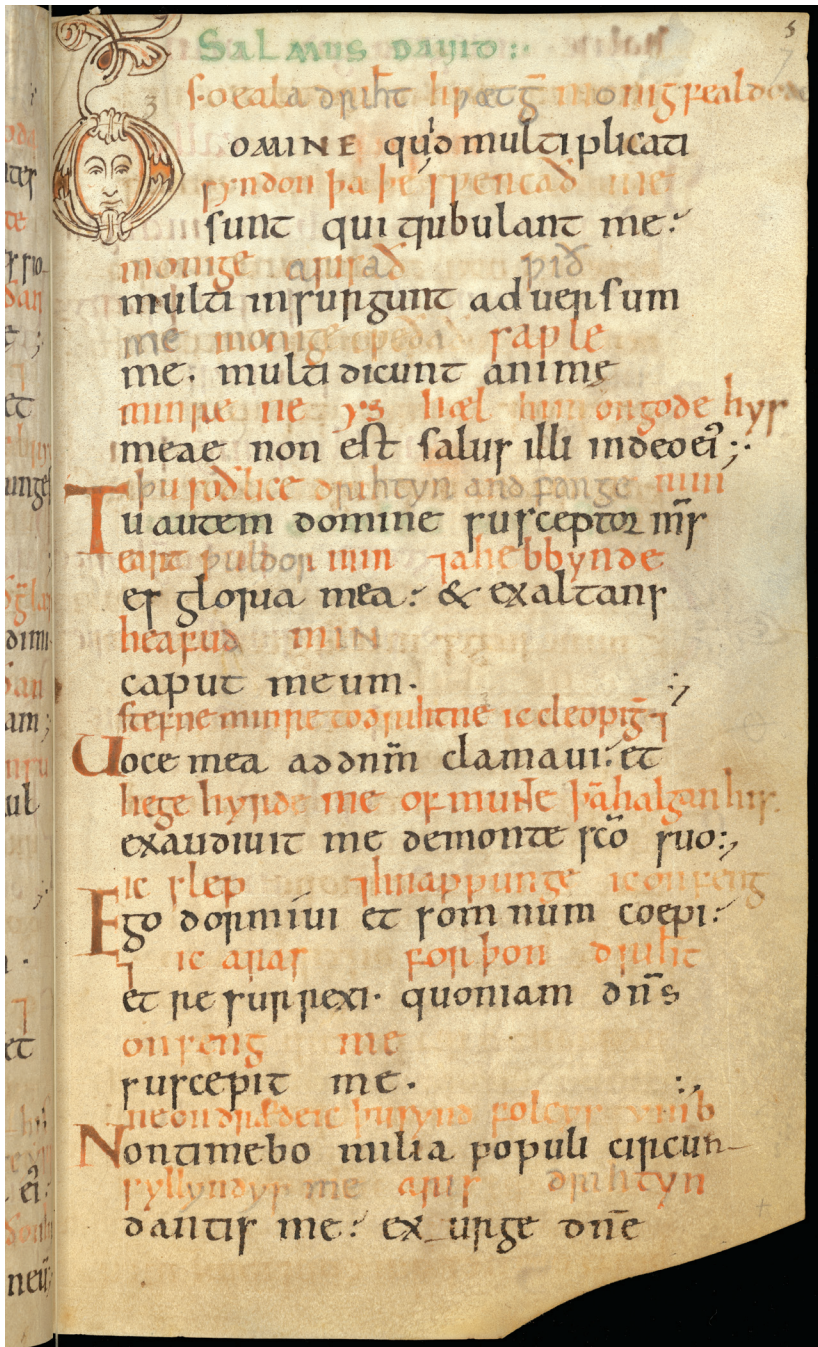 5
SALMUS DAUID:
OMINE quid multiplicati
sunt qui tribulant me:
monige arisað wið
multi insurgunt aduersum
me monige cweðað sawle
me. multi dicunt animę
minre ne ys hæl him on gode hys
meae non est salus illi in deo ei';
þu soðlice drihtyn andfænge min
Tu autem domine susceptor m̄s
eart wuldor min ⁊ ahebbynde
es gloria mea: & exaltans
heafud min
caput meum.
stefne minre to drihtne ic cleopig̅ ⁊
Uoce mea ad dnm̄ clamaui: et
he gehyrde me of munte þā halgan hys
exaudiuit me de monte sc̄o suo:,
ic slep ⁊ hnappunge ic onfeng
Ego dormiui et somnum coepi:
⁊ ic aras forþon driht̄
et resurrexi. quoniam dn̄s
onfeng me
suscepit me.
Non timebo milia populi circun
syllyndys me aris drihtyn
dantis me: exurge dn̄e